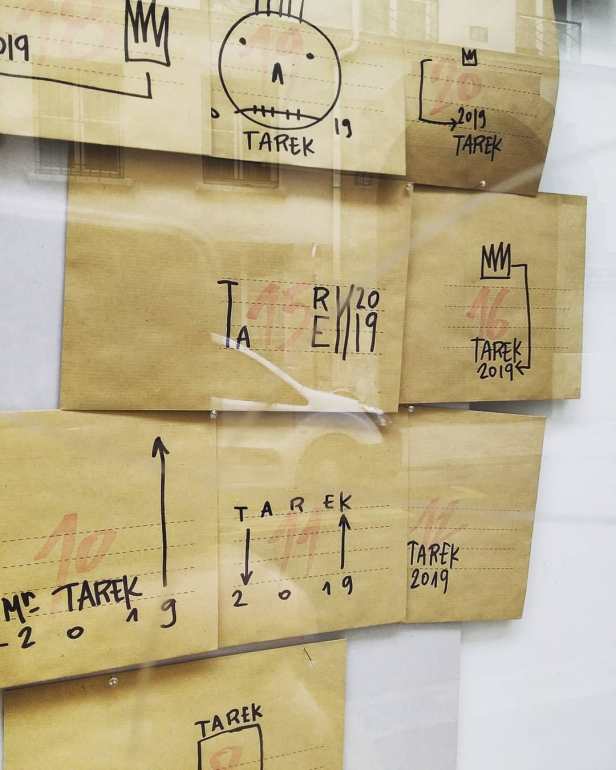 019
19
TAREK
20
2019
TAREK
T R 20
A 15 E 19
16
TAREK
2019
10
Mr TAREK
2019
TAREK
11
2019
TAREK
2019
TAREK
8